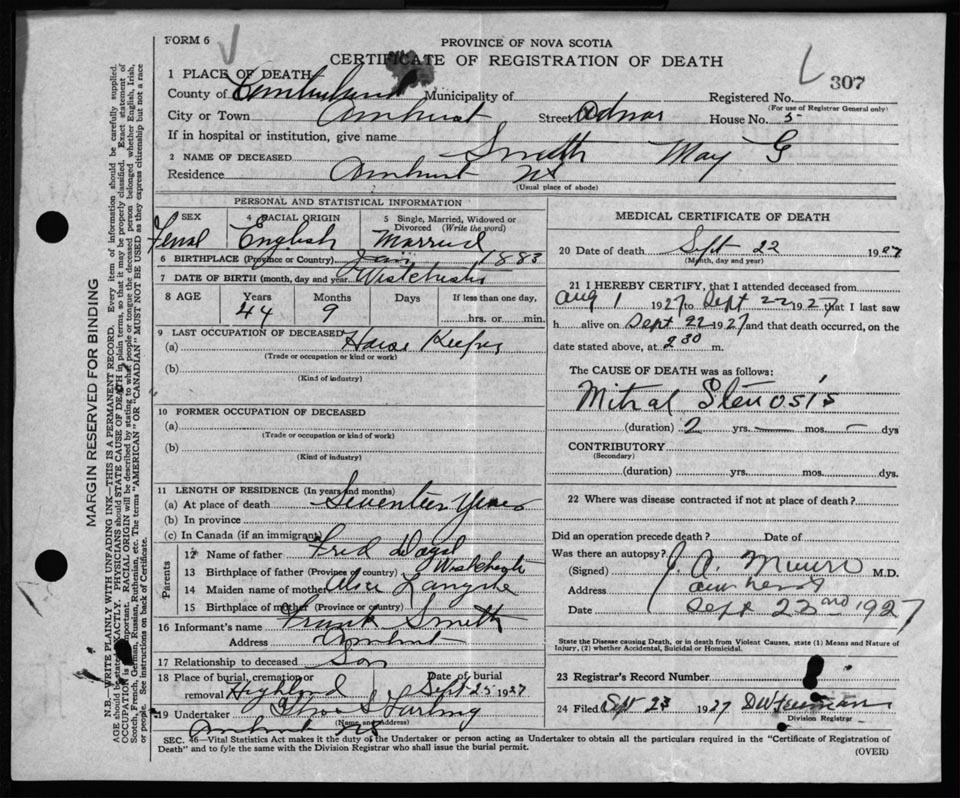 FORM 6
PROVINCE OF NOVA SCOTIA
CERTIFICATE OF REGISTRATION OF DEATH
307
1 PLACE OF DEATH
County of Cumberland Municipality of Registered No.
(For use of Registrar General only)
City or Town Amherst Street House No. 5
If in hospital or institution, give name
2 NAME OF DECEASED Smith May G
Residence Amherst NS
(Usual place of abode)
PERSONAL AND STATISTICAL INFORMATION
SEX 4 RACIAL ORIGIN 5 Single, Married, Widowed or Divorced (Write the word)
Femal English Married
6 BIRTHPLACE (Province or Country) Jan 1883
7 DATE OF BIRTH (month, day and year) Westchester
8 AGE Years Months Days If less than one day,
44 9 hrs. or min.
9 LAST OCCUPATION OF DECEASED
(a) House Keeper
(Trade or occupation or kind or work)
(b)
(Kind of industry)
10 FORMER OCCUPATION OF DECEASED
(a)
(Trade or occupation or kind of work)
(b)
(Kind of industry)
11 LENGTH OF RESIDENCE (In years and months)
(a) At place of death Seventeen Years
(b) In province
(c) In Canada (if an immigrant)
Parents
12 Name of father Fred
13 Birthplace of father (Province or country)
14 Maiden name of mother Alice
15 Birthplace of mother (Province or country)
16 Informant's name Frank Smith
Address Amherst
17 Relationship to deceased Son
18 Place of burial, cremation or removal Highland Date of burial Sept 25 1927
19 Undertaker
(Name and address)
Amherst NS
MEDICAL CERTIFICATE OF DEATH
20 Date of death Sept 22 1927
(Month, day and year)
21 I HEREBY CERTIFY, that I attended deceased from
Aug 1 1927 to Sept 22 1927 that I last saw
h alive on Sept 22 1927 and that death occurred, on the
date stated above, at 2 30 m.
The CAUSE OF DEATH was as follows:
Mitral Stenosis
(duration) 2 yrs. mos. dys
CONTRIBUTORY
(Secondary)
(duration) yrs. mos. dys.
22 Where was disease contracted if not at place of death?
Did an operation precede death? Date of
Was there an autopsy?
(Signed) J. A. Munro M.D.
Address Amherst
Date Sept 22nd 1927
State the Disease causing Death, or in death from Violent Causes, state (1) Means and Nature of
Injury, (2) whether Accidental, Suicidal or Homicidal.
23 Registrar's Record Number
24 Filed Sept 23 1927
Division Registrar
SEC. 46—Vital Statistics Act makes it the duty of the Undertaker or person acting as Undertaker to obtain all the particulars required in the "Certificate of Registration of
Death" and to fyle the same with the Division Registrar who shall issue the burial permit.
(OVER)
MARGIN RESERVED FOR BINDING
N.B.—WRITE PLAINLY WITH UNFADING INK—THIS IS A PERMANENT RECORD. Every item of information should be carefully supplied.
AGE should be stated EXACTLY. PHYSICIANS should STATE CAUSE OF DEATH in plain terms, so that it may be properly classified. Exact statement of
OCCUPATION is important. RACIAL ORIGIN will be described by stating to what people or tongue the deceased person belonged whether English, Irish,
Scotch, French, German, Russian, Ruthenian, etc. The terms "AMERICAN" OR "CANADIAN" MUST NOT BE USED as they express citizenship but not a race
or people. See instructions on back of Certificate.